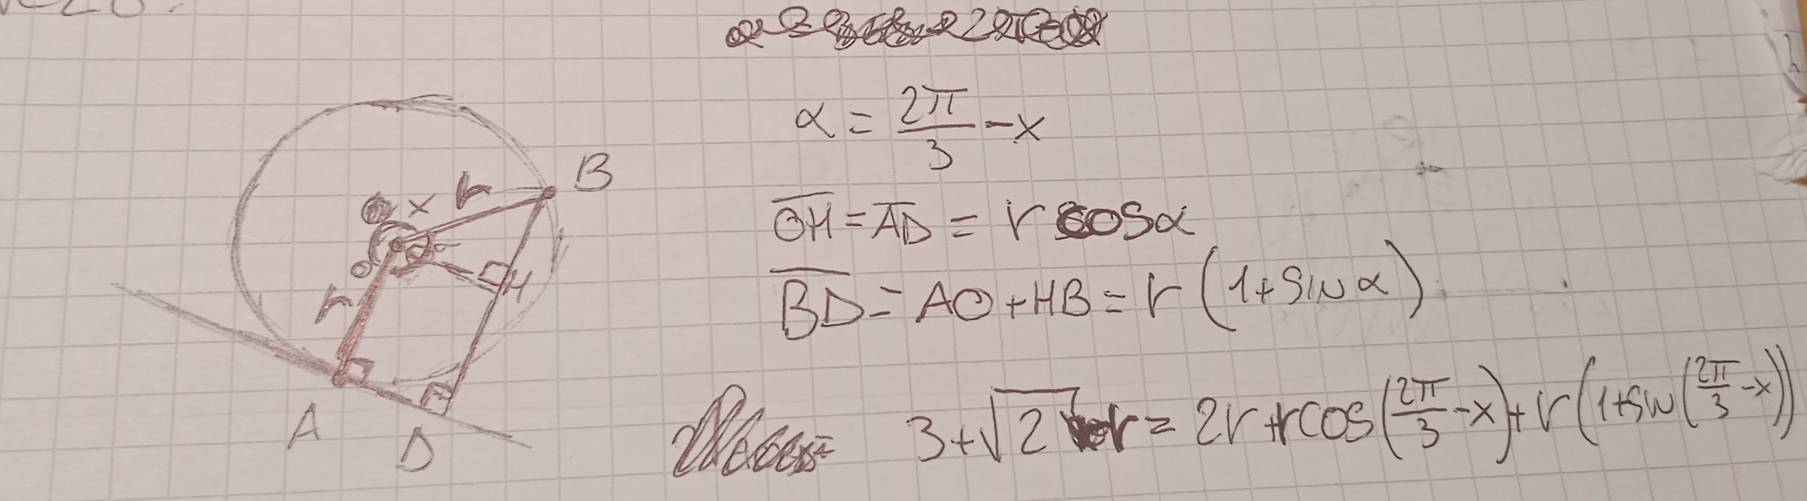 α = 2π/3 - x
OH = AD = r cosα
BD = AO + HB = r (1 + sin α)
3 + √2 r = 2r + r cos(2π/3 - x) + r(1 + sin(2π/3 - x))
x r B
O
H
r
A D